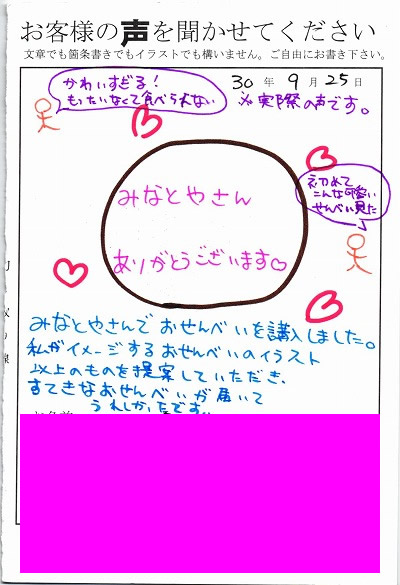 お客様の声を聞かせてください
文章でも箇条書きでもイラストでも構いません。ご自由にお書き下さい。
30年9月25日
かわいすぎる!
もったいなくて食べられない
※実際の声です。
みなとやさん
ありがとうございます♡
初めて
こんな可愛い
せんべい見た
みなとやさんでおせんべいを講入しました。
私がイメージするおせんべいのイラスト
以上のものを提案していただき、
すてきなおせんべいが届いて
うれしかったです。